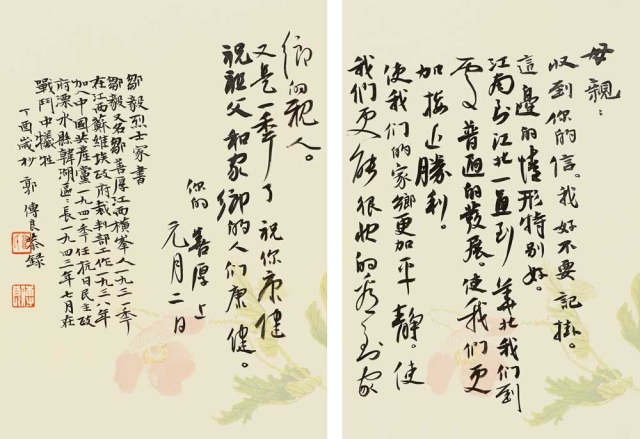 母親：
收到你的信。我好不要記掛。
這邊的情形特别好。
江南到江北一直到華北我们到
處普遍的發展。使我们更
加接近勝利。
使我们的家鄉更加平静。使
我们更能很快的看到家
鄉的親人。
又是一年了祝你康健
祝祖父和家鄉的人们康健。
你的善厚上
元月二日
鄒毅烈士家書
鄒毅又名鄒善厚江西横峯人一九三一年
在江西蘇維埃政府裁判部工作一九三八年
加入中國共產黨一九四一年任抗日民主政
府溧水縣韓湖區區長一九四三年七月在
戰鬥中犧牲
丁酉歲杪 郭傳良恭錄